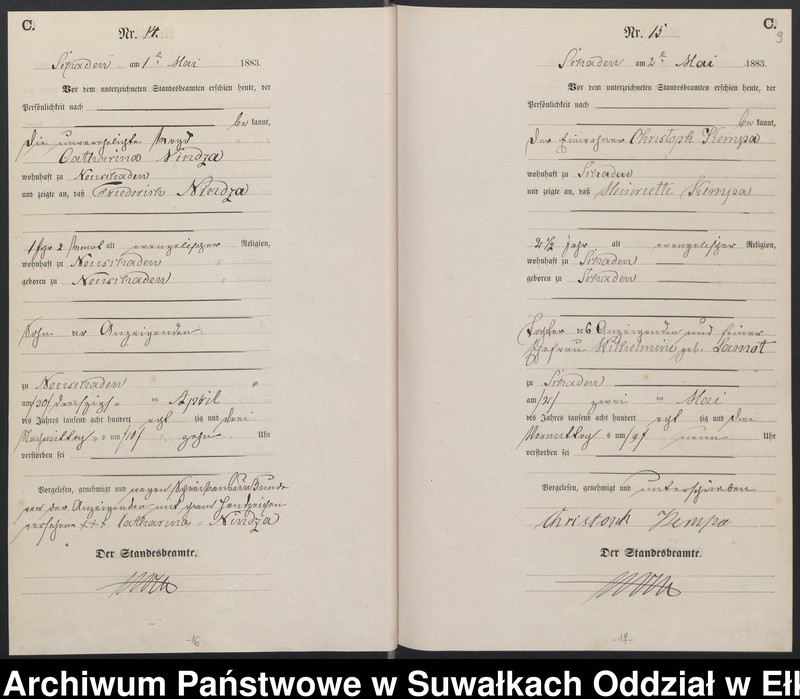 C.
Nr. 14.
Schaden am 1ten Mai 1883.
Vor dem unterzeichneten Standesbeamten erschien heute, der
Persönlichkeit nach
be kannt,
die unverehelichte Magd
Catharina Nindza
wohnhaft zu Neuschaden
und zeigte an, daß Friederich Nindza
1 Jahr 2 Monat alt evangelischer Religion,
wohnhaft zu Neuschaden
geboren zu Neuschaden
Sohn der Anzeigenden
zu Neuschaden
am /30/ dreißigs- ten April
des Jahres tausend acht hundert acht zig und drei
Nachmittag s um /10/ zehn Uhr
verstorben sei
Vorgelesen, genehmigt und wegen Schreibensunkunde
von der Anzeigenden mit Handzeichen
versehen +++ Catharina Nindza
Der Standesbeamte.
-16-
C.
9
Nr. 15
Schaden am 2ten Mai 1883.
Vor dem unterzeichneten Standesbeamten erschien heute, der
Persönlichkeit nach
be kannt,
der Einwohner Christoph Kempa
wohnhaft zu Schaden
und zeigte an, daß Heinriette Kempa
2 1/2 Jahr alt evangelischer Religion,
wohnhaft zu Schaden
geboren zu Schaden
Tochter des Anzeigenden und seiner
Ehefrau Wilhelmine geb. Lamot
zu Schaden
am /2/ zwei ten Mai
des Jahres tausend acht hundert acht zig und drei
Vormittag s um /9/ neun Uhr
verstorben sei
Vorgelesen, genehmigt und unterschrieben
Christoph Kempa
Der Standesbeamte.
-17-
Archiwum Państwowe w Suwałkach Oddział w Eł